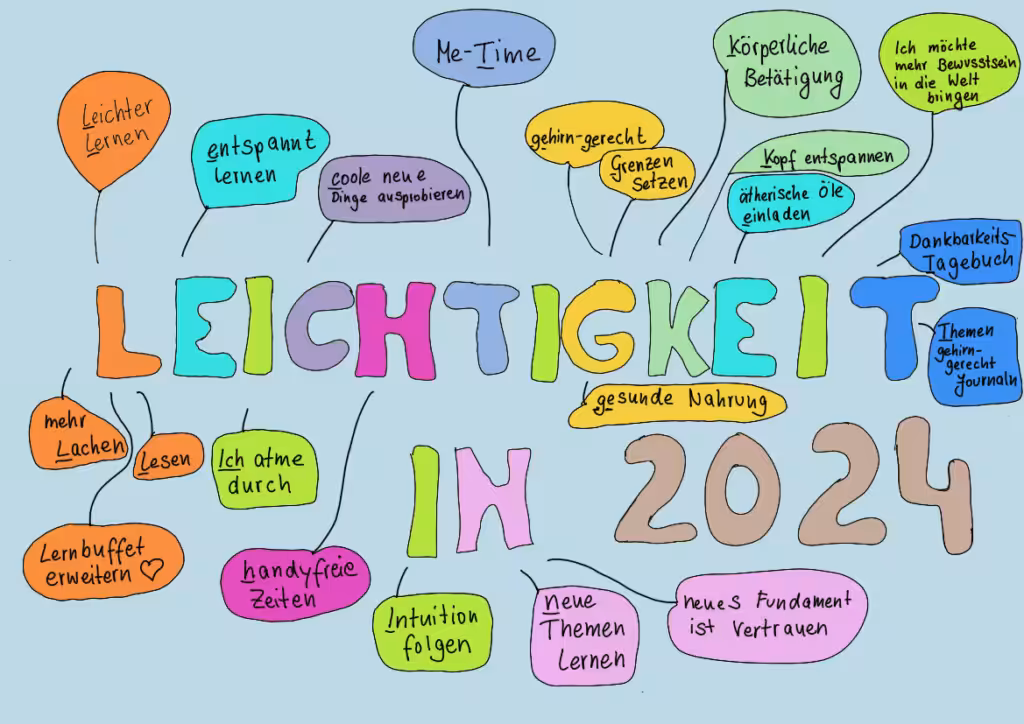 Me-Time
Körperliche
Betätigung
Ich möchte
mehr Bewusstsein
in die Welt
bringen
Leichter
Lernen
entspannt
lernen
coole neue
Dinge ausprobieren
gehirn-gerecht
Grenzen
Setzen
Kopf entspannen
ätherische Öle
einladen
Dankbarkeits-
Tagebuch
LEICHTIGKEIT
Themen
gehirn-
gerecht
Journaln
mehr
Lachen
Lesen
Ich atme
durch
gesunde Nahrung
IN 2024
Lernbuffet
erweitern
handyfreie
Zeiten
Intuition
folgen
neue
Themen
Lernen
neues Fundament
ist Vertrauen